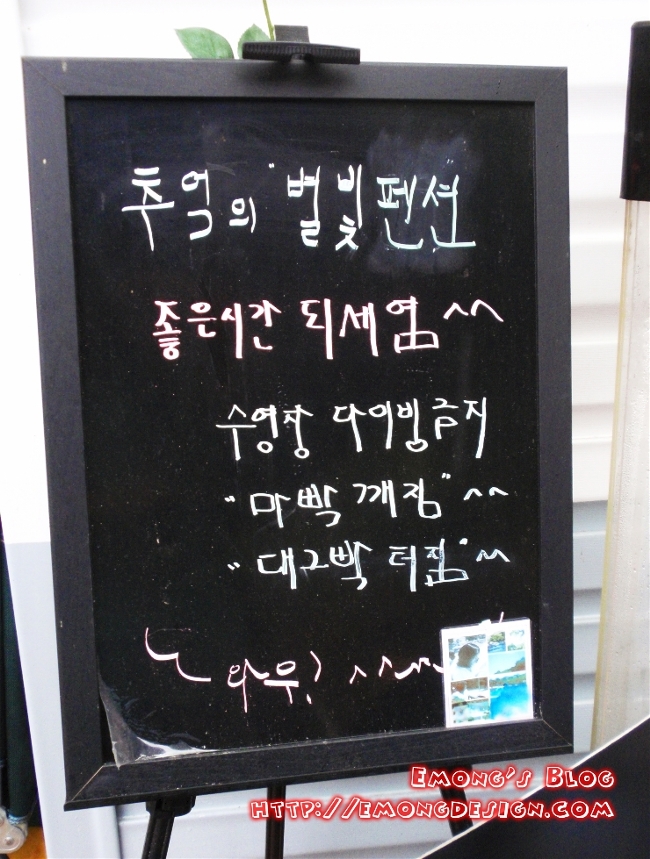 추억의 "별빛펜션"
좋은시간 되세염 ^^
수영장 다이빙금지
"마빡 깨짐" ^^
"대그빡 터짐" ^^
와우!
Emong's Blog
http://emongdesign.com